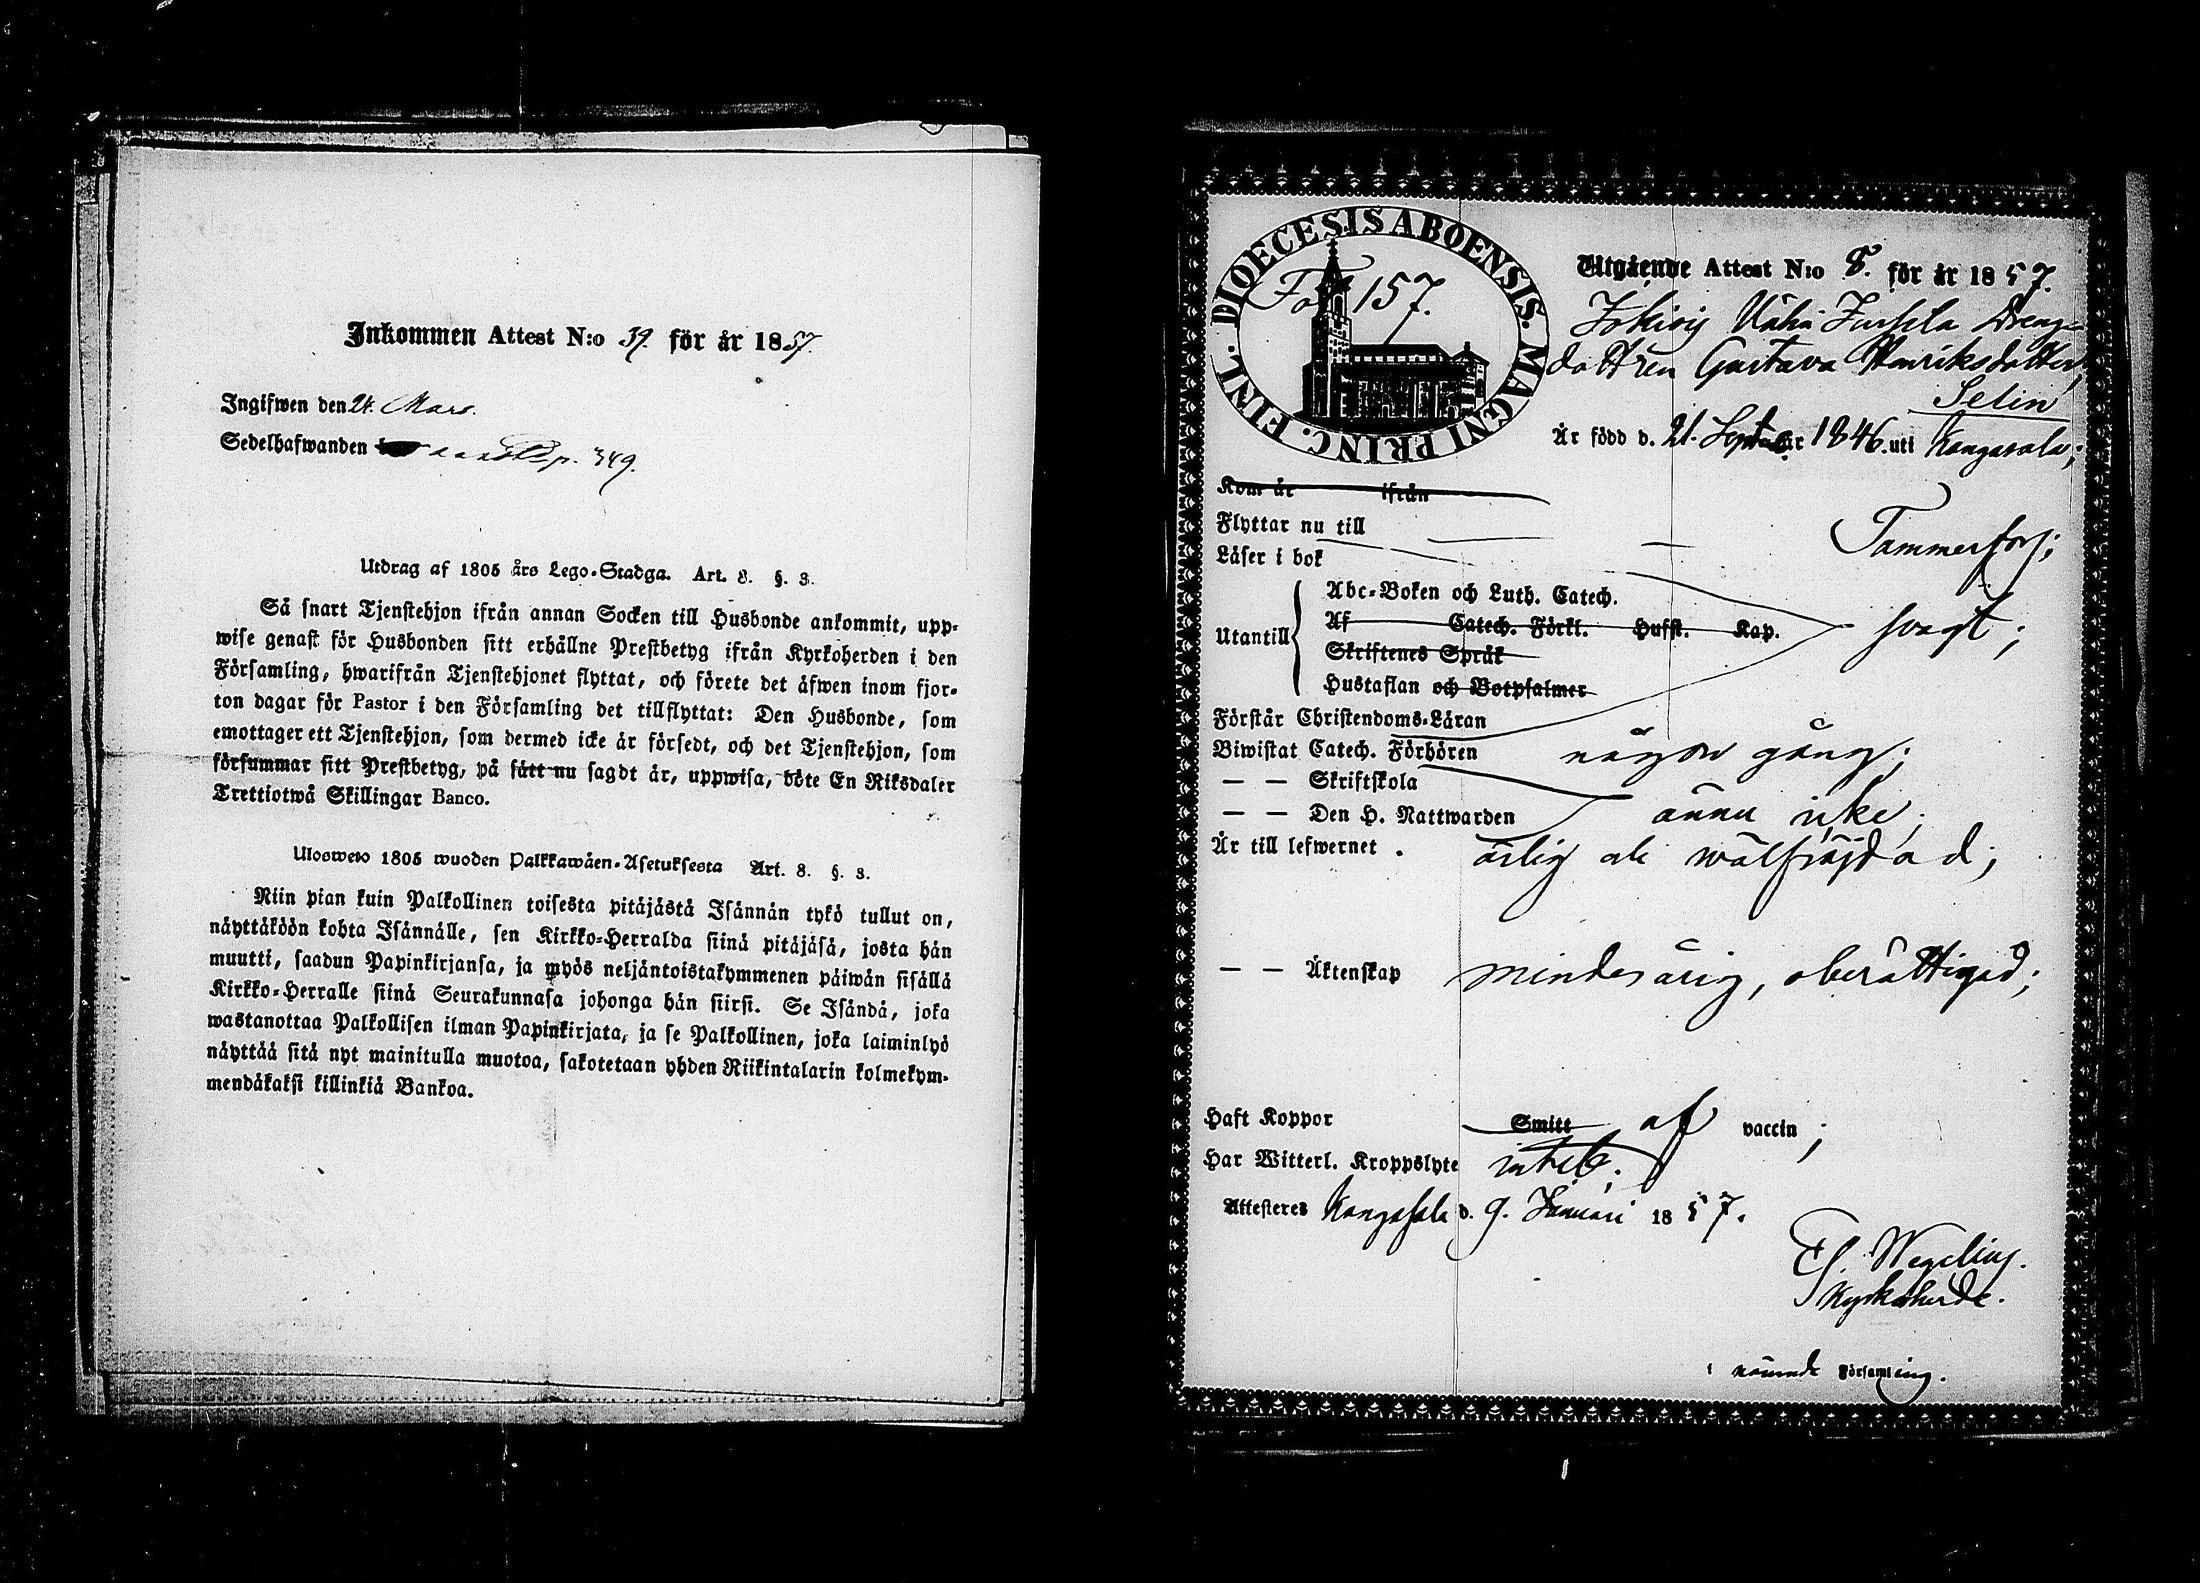 Inkommen Attest N:o 39. för år 1857.
Ingifwen den 24. Mars.
Sedelhafwanden p. 349.
Utdrag af 1805 års Lego-Stadga. Art. 8. §. 3.
Så snart Tjenstehjon ifrån annan Socken till Husbonde ankommit, upp-
wise genast för Husbonden sitt erhållne Prestbetyg ifrån Kyrkoherden i den
Församling, hwarifrån Tjenstehjonet flyttat, och förete det äfwen inom fjor-
ton dagar för Pastor i den Församling det tillflyttat: Den Husbonde, som
emottager ett Tjenstehjon, som dermed icke är försedt, och det Tjenstehjon, som
försummar sitt Prestbetyg, på sätt nu sagdt är, uppwisa, böte En Riksdaler
Trettiotwå Skillingar Banco.
Ulosweto 1805 wuoden Palkkawäen-Asetuksesta Art. 8. §. 3.
Niin pian kuin Palkollinen toisesta pitäjästä Isännän tykö tullut on,
näyttäköön kohta Isännälle, sen Kirkko-Herralda siinä pitäjäsä, josta hän
muutti, saadun Papinkirjansa, ja myös neljäntoistakymmenen päiwän sisällä
Kirkko-Herralle siinä Seurakunnasa johonga hän siirsi. Se Isändä, joka
wastanottaa Palkollisen ilman Papinkirjata, ja se Palkollinen, joka laiminlyö
näyttää sitä nyt mainitulla muotoa, sakotetaan yhden Riikintalarin kolmekym-
mendäkaksi killinkiä Bankoa.
DIOECESIS ABOENSIS. MAGNI PRINC. FINL.
Fol 157.
Utgående Attest N:o 8. för år 1857.
Drenge-
dottren Gustava Henriksdotter
Selin
Är född d. 21. September 1846. uti Kangasala;
Kom år ifrån
Flyttar nu till Tammerfors;
Läser i bok
Utantill
Abc-Boken och Luth. Catech.
Af Catech. Förkl. Husst. Kap.
Skriftenes Språk
Hustaflan och Botpsalmer
svagt;
Förstår Christendoms-Läran
Biwistat Catech. Förhören någon gång;
— — Skriftskola
— — Den H. Nattwarden ännu icke;
Är till lefwernet . ärlig och wälfräjdad;
— — Äktenskap minderårig, oberättigad;
Haft Koppor Smitt af vaccin;
Har Witterl. Kroppslyte intet;
Attesteres Kangasala d. 9. Januari 1857.
Wegelius.
Kyrkoherde.
i nämnde Församling.